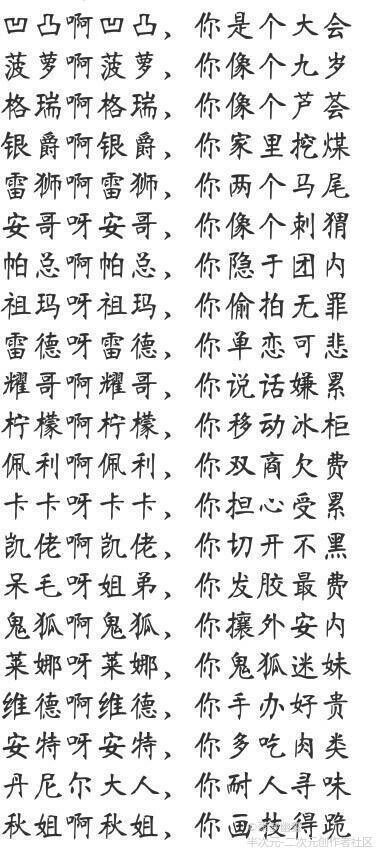 凹凸啊凹凸，你是个大会
菠萝啊菠萝，你像个九岁
格瑞啊格瑞，你像个芦荟
银爵啊银爵，你家里挖煤
雷狮啊雷狮，你两个马尾
安哥呀安哥，你像个刺猬
帕总啊帕总，你隐于团内
祖玛呀祖玛，你偷拍无罪
雷德呀雷德，你单恋可悲
耀哥啊耀哥，你说话嫌累
柠檬啊柠檬，你移动冰柜
佩利啊佩利，你双商欠费
卡卡呀卡卡，你担心受累
凯佬啊凯佬，你切开不黑
呆毛呀姐弟，你发胶最费
鬼狐啊鬼狐，你攘外安内
莱娜呀莱娜，你鬼狐迷妹
维德啊维德，你手办好贵
安特呀安特，你多吃肉类
丹尼尔大人，你耐人寻味
秋姐啊秋姐，你画技得跪
半次元-二次元创作者社区